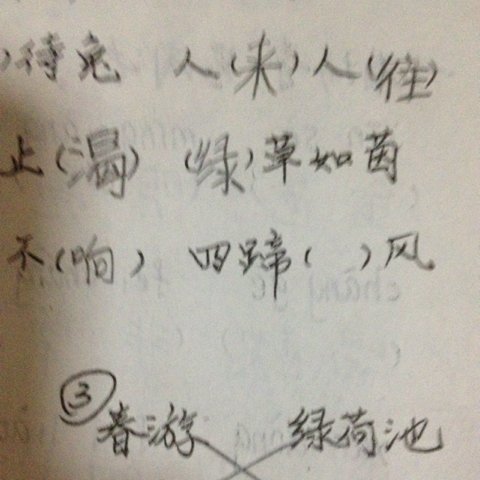 )待兔 人(来)人(往)
止(渴) (绿)草如茵
不(响) 四蹄( )风
③春游 绿荷池